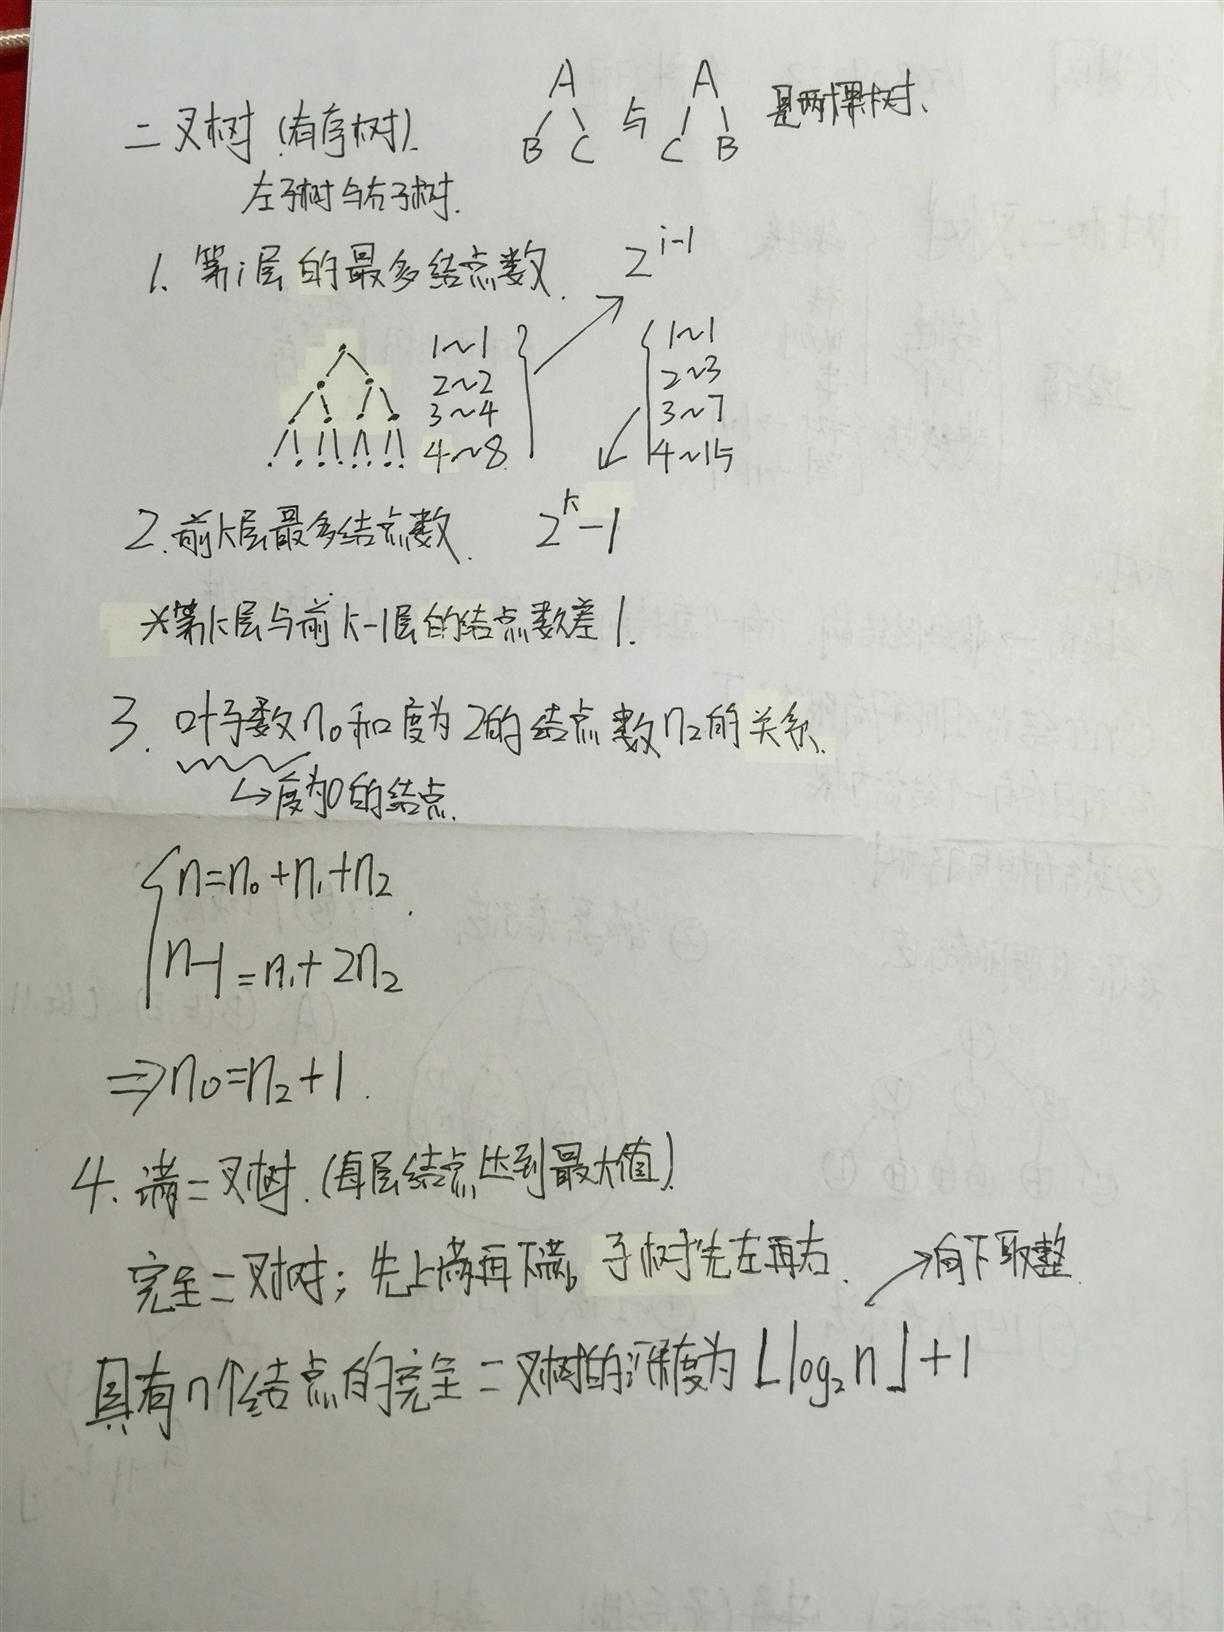 二叉树（有序树）.
A
B C
与
A
C B
是两棵树、
左子树与右子树.
1、第i层的最多结点数. 2^{i-1}
1~1
2~2
3~4
4~8.
1~1
2~3
3~7
4~15
2.前k层最多结点数. 2^k-1
*第k层与前k-1层的结点数差1.
3.叶子数n₀和度为2的结点数n₂的关系.
↳度为0的结点.
n=n₀+n₁+n₂.
n-1=n₁+2n₂
⇒n₀=n₂+1.
4.满二叉树.(每层结点达到最大值).
完全二叉树；先上满再下满, 子树先左再右.
向下取整.
具有n个结点的完全二叉树的深度为⌊log₂n⌋+1